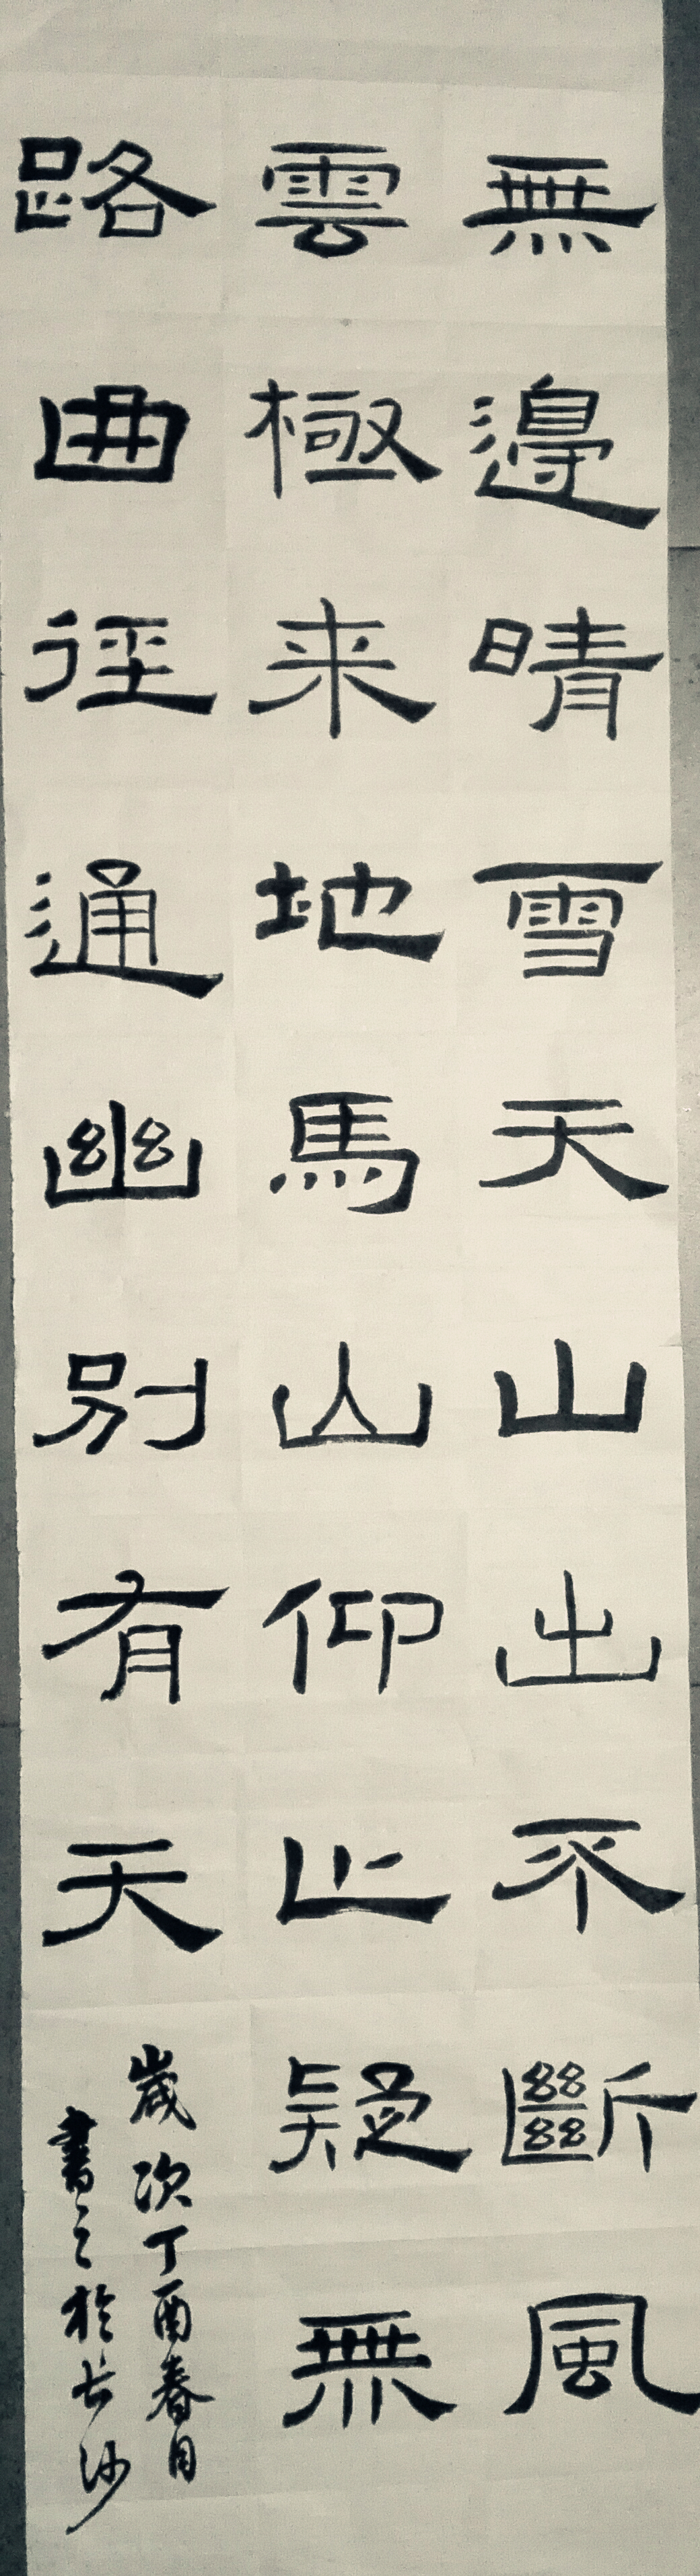 無邊晴雪天山出不斷風
雲極来地馬山仰止疑無
路曲徑通幽別有天
歲次丁酉春月
書之於长沙